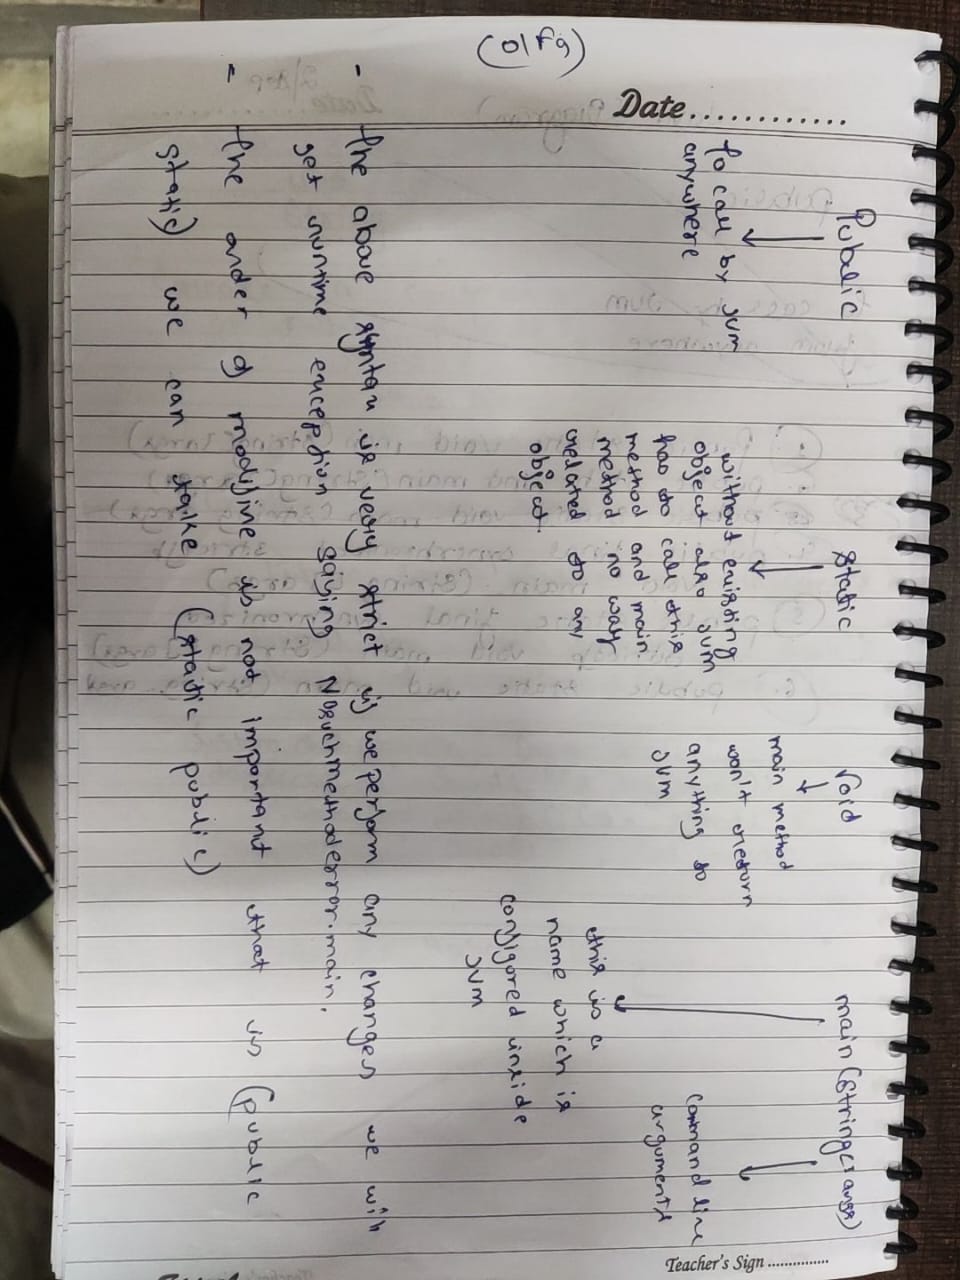 (01fg)
Date............
Public static void main (String[] args)
to call by JVM
anywhere
without existing
object also JVM
has to call this
method and main
method no way
related to any
object.
main method
won't return
anything to
JVM
this is a
name which is
configored inside
JVM
command line
arguments
- the above syntax is very strict if we perform any changes we will
get runtime exception saying Nosuchmethoderror.main.
- the order of modifire is not important that is (public
static) we can take (static public)
Teacher's Sign ..............